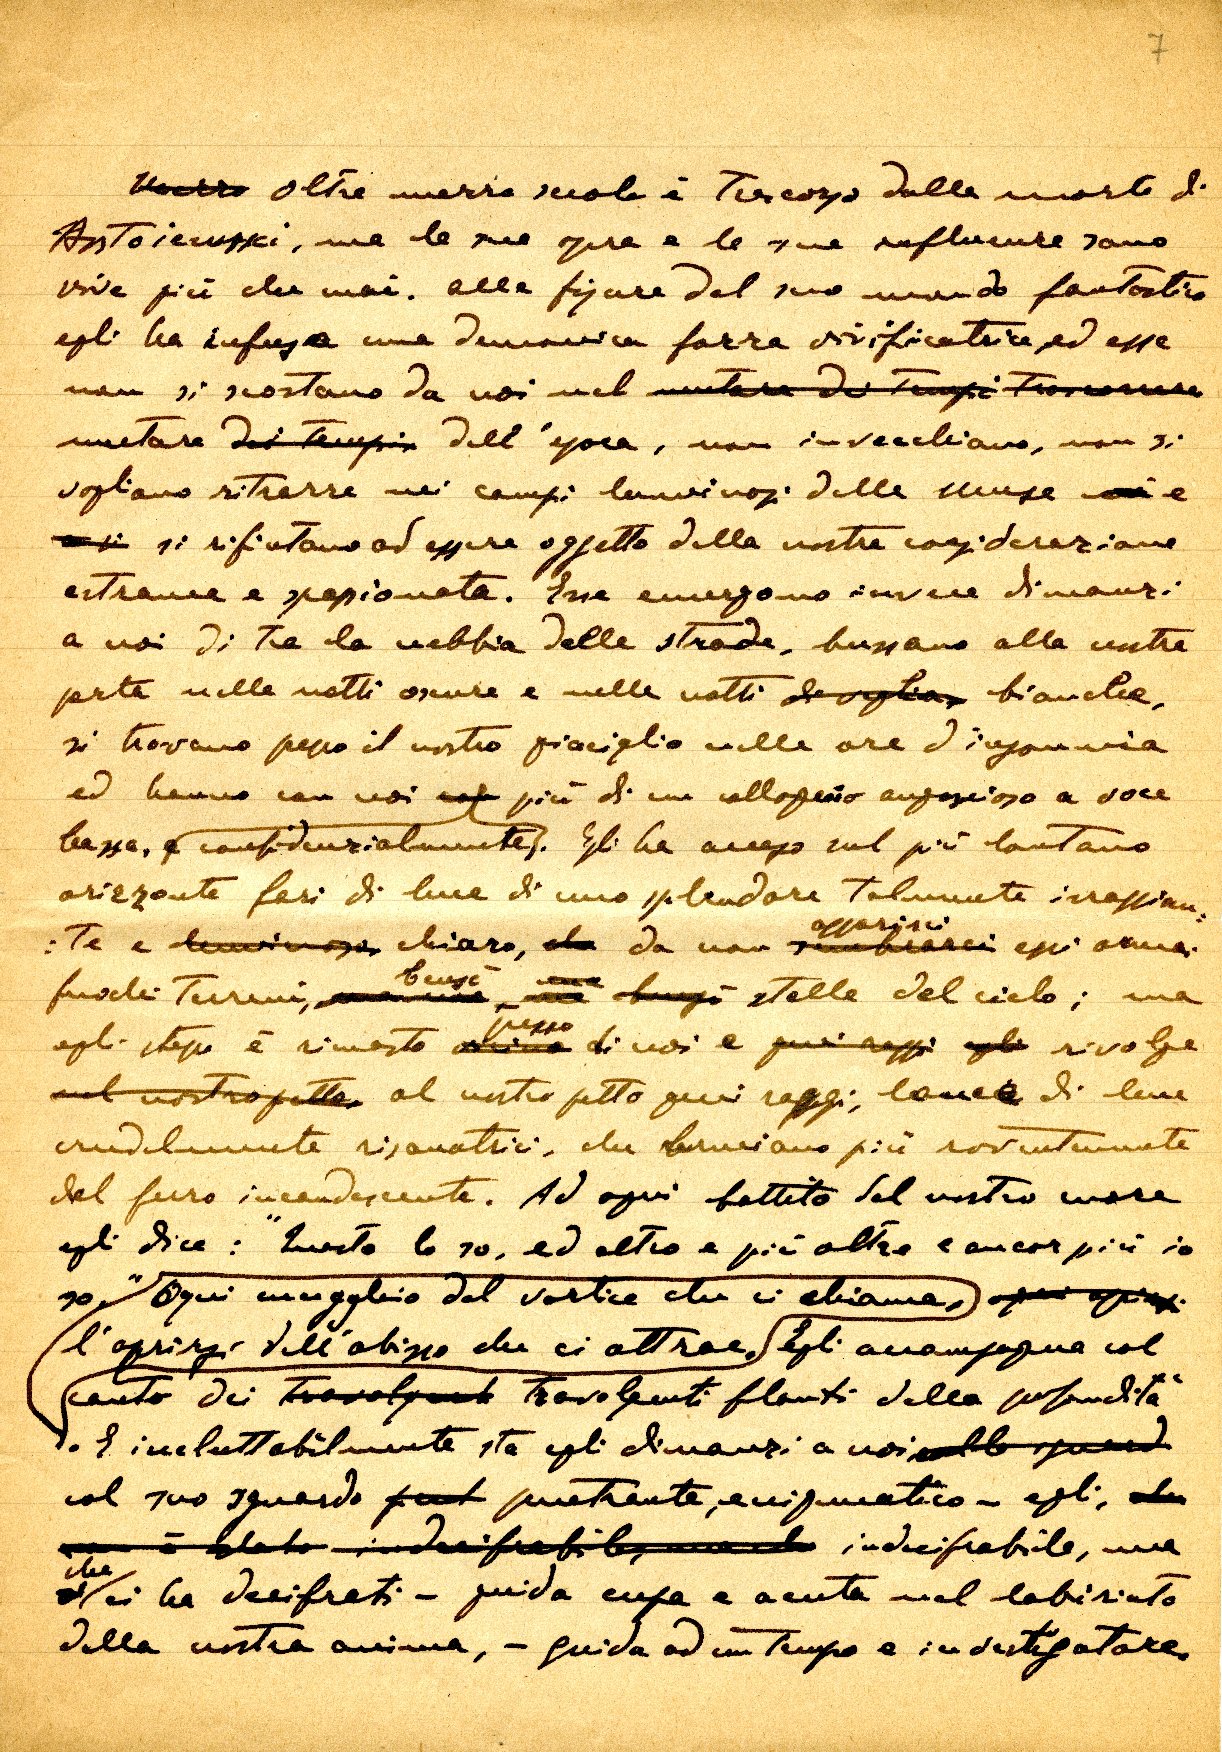 7
Mezzo oltre mezzo secolo è trascorso dalla morte di
Dostoievsski, ma la sua opera e la sua influenza sono
vive più che mai. Alle figure del suo mondo fantastico
egli ha infuso una demonica forza vivificatrice, ed esse
non si scostano da noi nel mutare dei tempi trascorrere
mutare dei tempi, dell'epoca, non invecchiano, non si
vogliono ritrarre nei campi luminosi delle Muse e
e si si rifiutano ad essere oggetto della nostra considerazione
estranea e spassionata. Esse emergono invece dinanzi
a noi di tra la nebbia delle strade, bussano alla nostra
porta nelle notti oscure e nelle notti di veglia, bianche,
si trovano presso il nostro giaciglio nelle ore d'insonnia
ed hanno con noi più di un colloquio angoscioso a voce
bassa, e confidenzialmente. Egli ha acceso sul più lontano
orizzonte fari di luce di uno splendore talmente irraggian:
apparirci
:te e luminoso, chiaro, che da non sembrarci essi ormai
bensì
fuochi terreni, ma una stelle del cielo; ma
presso
egli stesso è rimasto vicino di noi e quei raggi egli rivolge
nel nostro petto, al nostro petto quei raggi, lance di luce
crudelmente risanatrici, che bruciano più roventemente
del ferro incandescente. Ad ogni battito del nostro cuore
egli dice: "Questo lo so, ed altro e più altro e ancor più io
so." Ogni mugghio del vortice che ci chiama, ogni aprirsi
l'aprirsi dell'abisso che ci attrae, Egli accompagna col
canto dei travolgenti travolgenti flauti della profondità"
. E ineluttabilmente sta egli dinanzi a noi collo sguard
col suo sguardo penetrante, enigmatico – egli, che
non è stato indecifrabile, ma
che
ci ha decifrati – guida cupa e acuta nel labirinto
della nostra anima, – guida ad un tempo e investigatore.